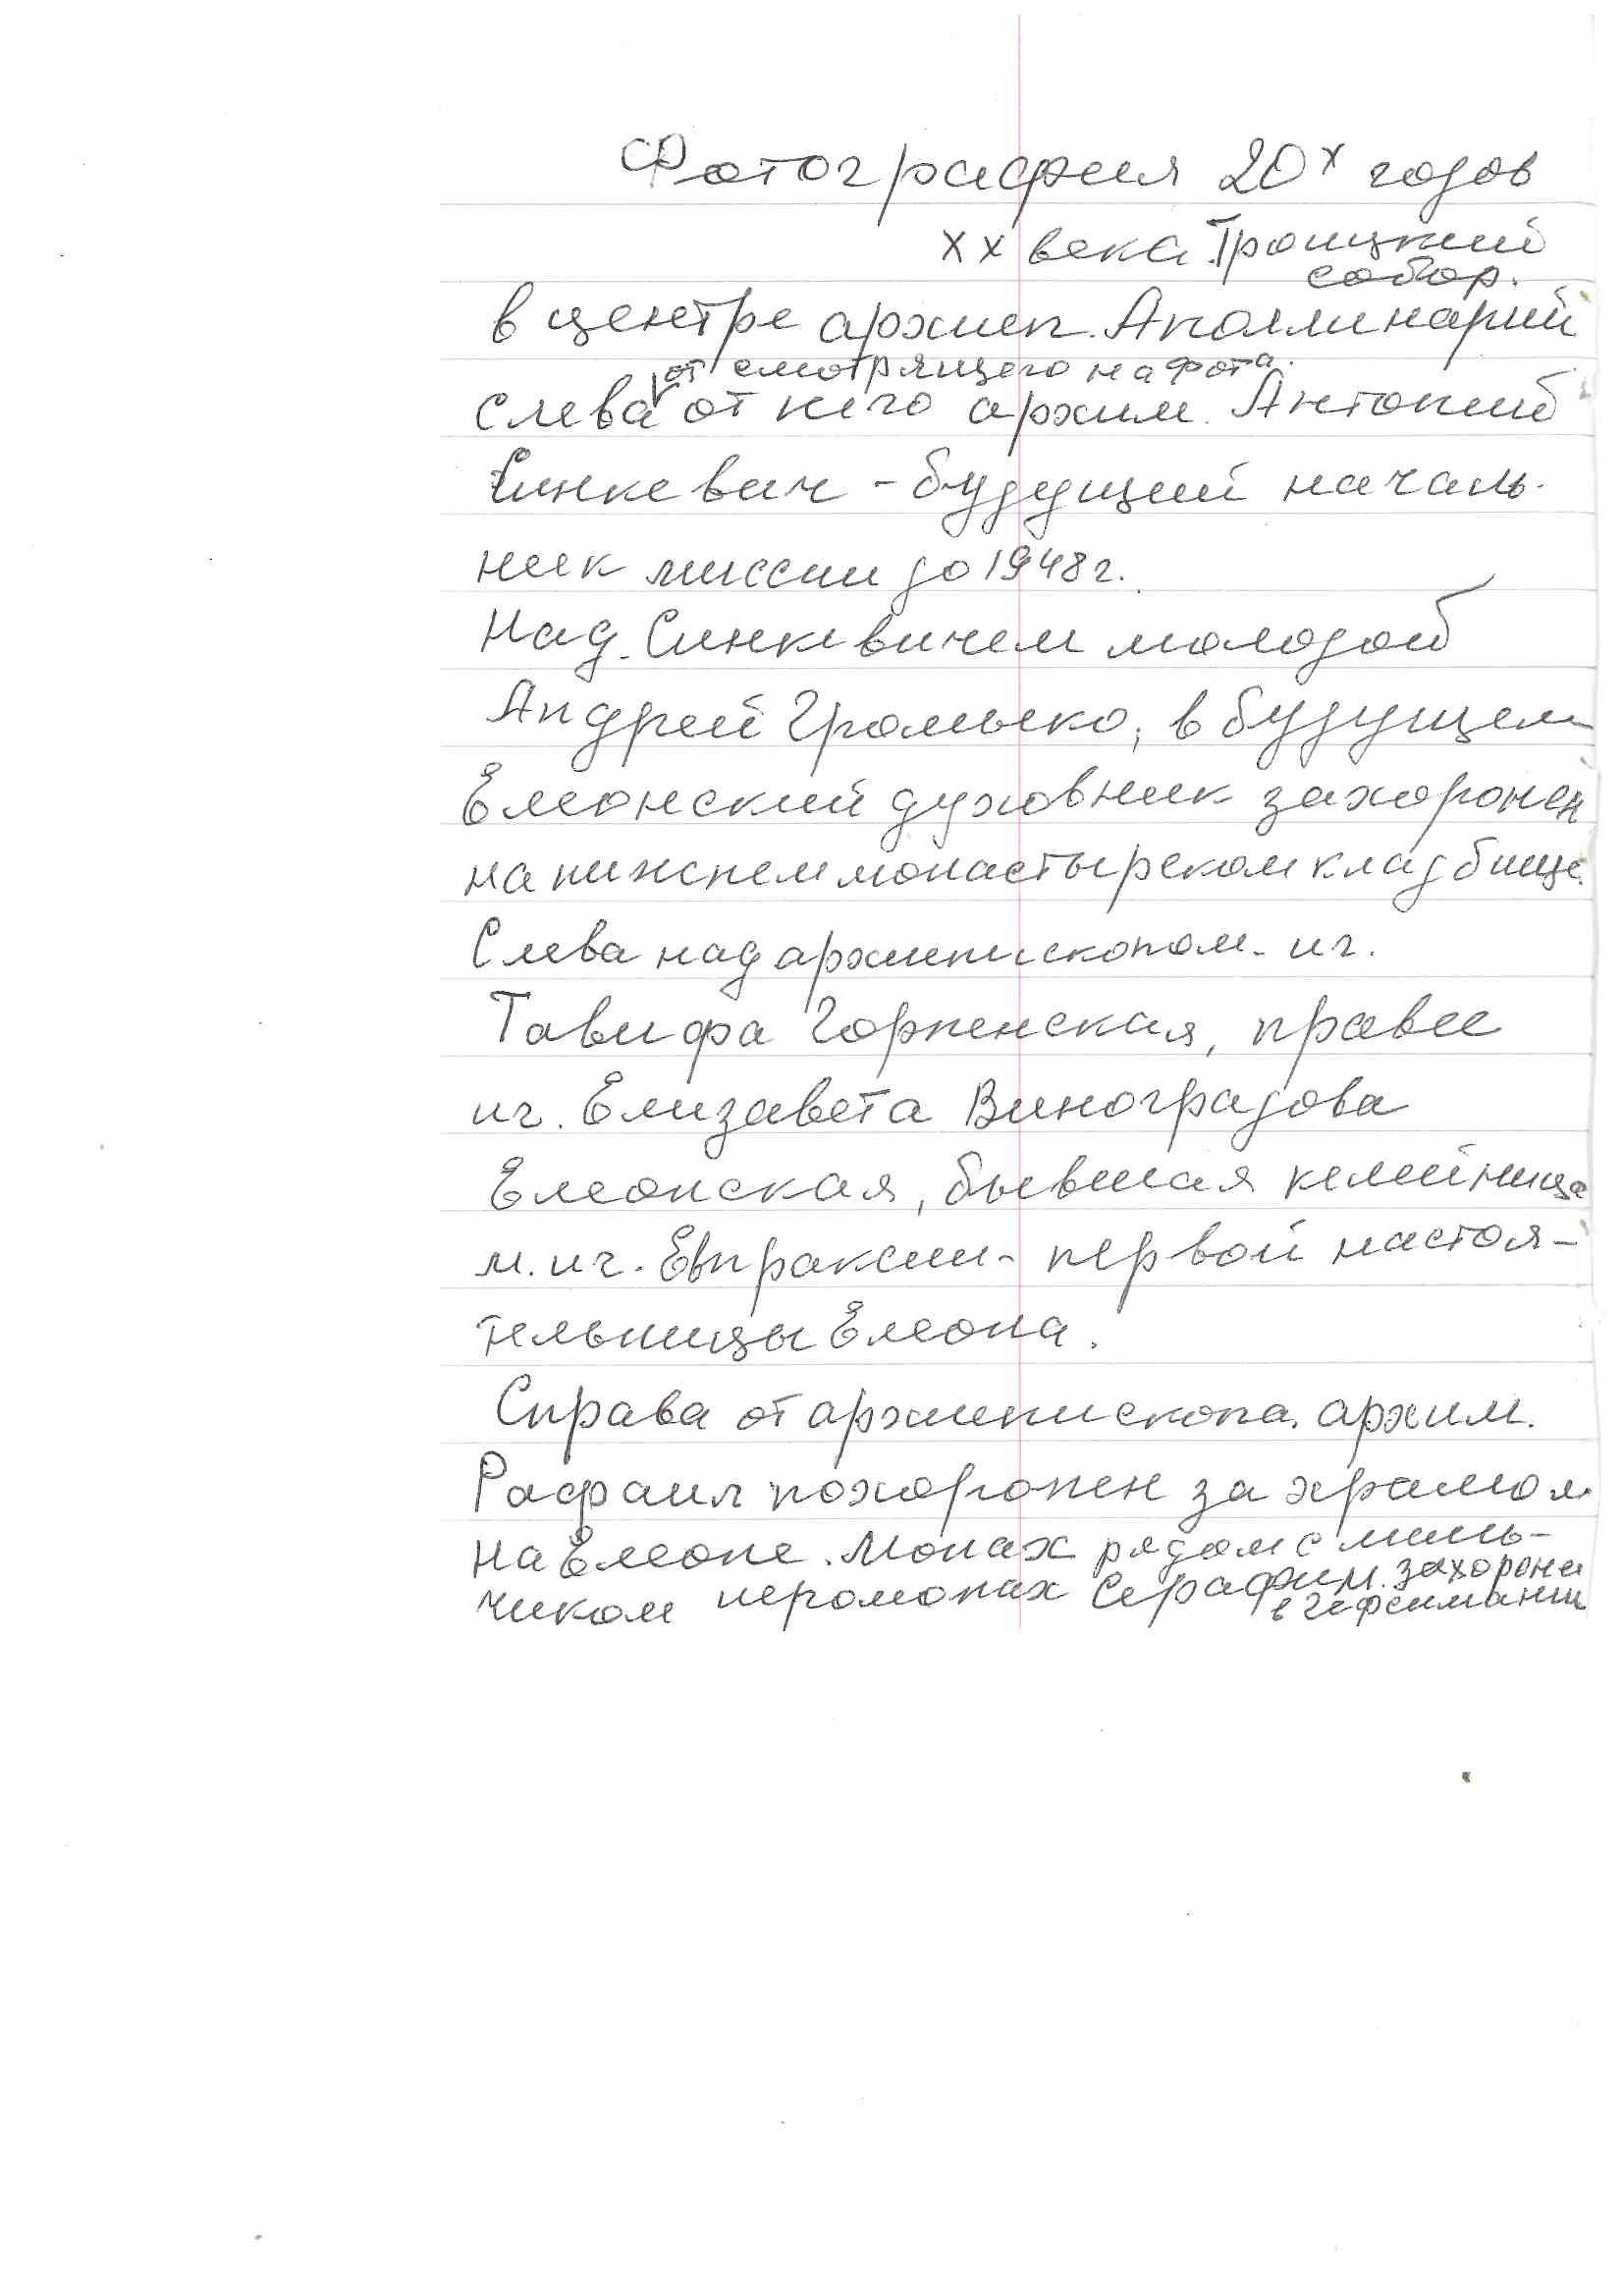 Фотография 20х годов
XX века. Троицкий
собор.
в центре архиеп. Аполлинарий
от смотрящего на фото.
слева от него архим. Антоний
Синкевич - будущий началь-
ник миссии до 1948 г.
Над Синкевичем молодой
Андрей Громыко, в будущем
Елеонский духовник захоронен
на нижнем монастырском кладбище.
Слева над архиепископом - иг.
Тавифа Горненская, правее
иг. Елизавета Виноградова
Елеонская, бывшая келейница
м. иг. Евпраксии - первой настоя-
тельницы Елеона.
Справа от архиепископа. архим.
Рафаил похоронен за храмом
на Елеоне. Монах рядом с маль-
чиком иеромонах Серафим. захоронен
в Гефсимании